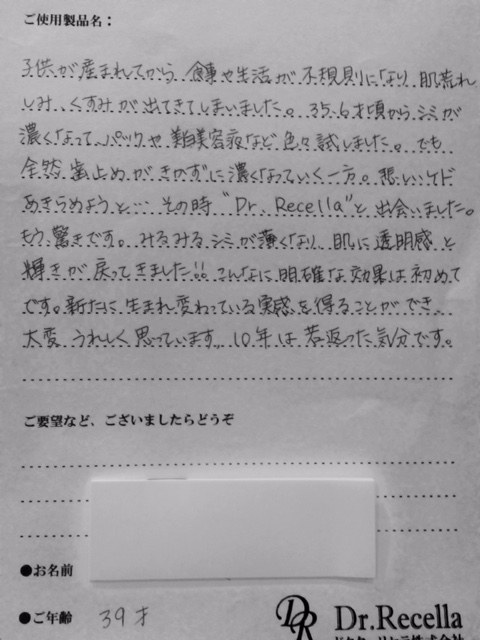 ご使用製品名：
子供が産まれてから、食事や生活が不規則になり、肌荒れ
しみ、くすみが出てきてしまいました。35.6才頃からシミが
濃くなって、パックや美白美容液など色々試しました。でも
全然歯止めがきかずに濃くなっていく一方。悲しいケド
あきらめようと…その時“Dr. Recella”と出会いました。
もう驚きです。みるみるシミが薄くなり、肌に透明感と
輝きが戻ってきました!!こんなに明確な効果は初めて
です。新たに生まれ変わっている実感を得ることができ、
大変うれしく思っています。10年は若返った気分です。
ご要望など、ございましたらどうぞ
●お名前
●ご年齢 39才
DR Dr.Recella
ドクターリセラ株式会社